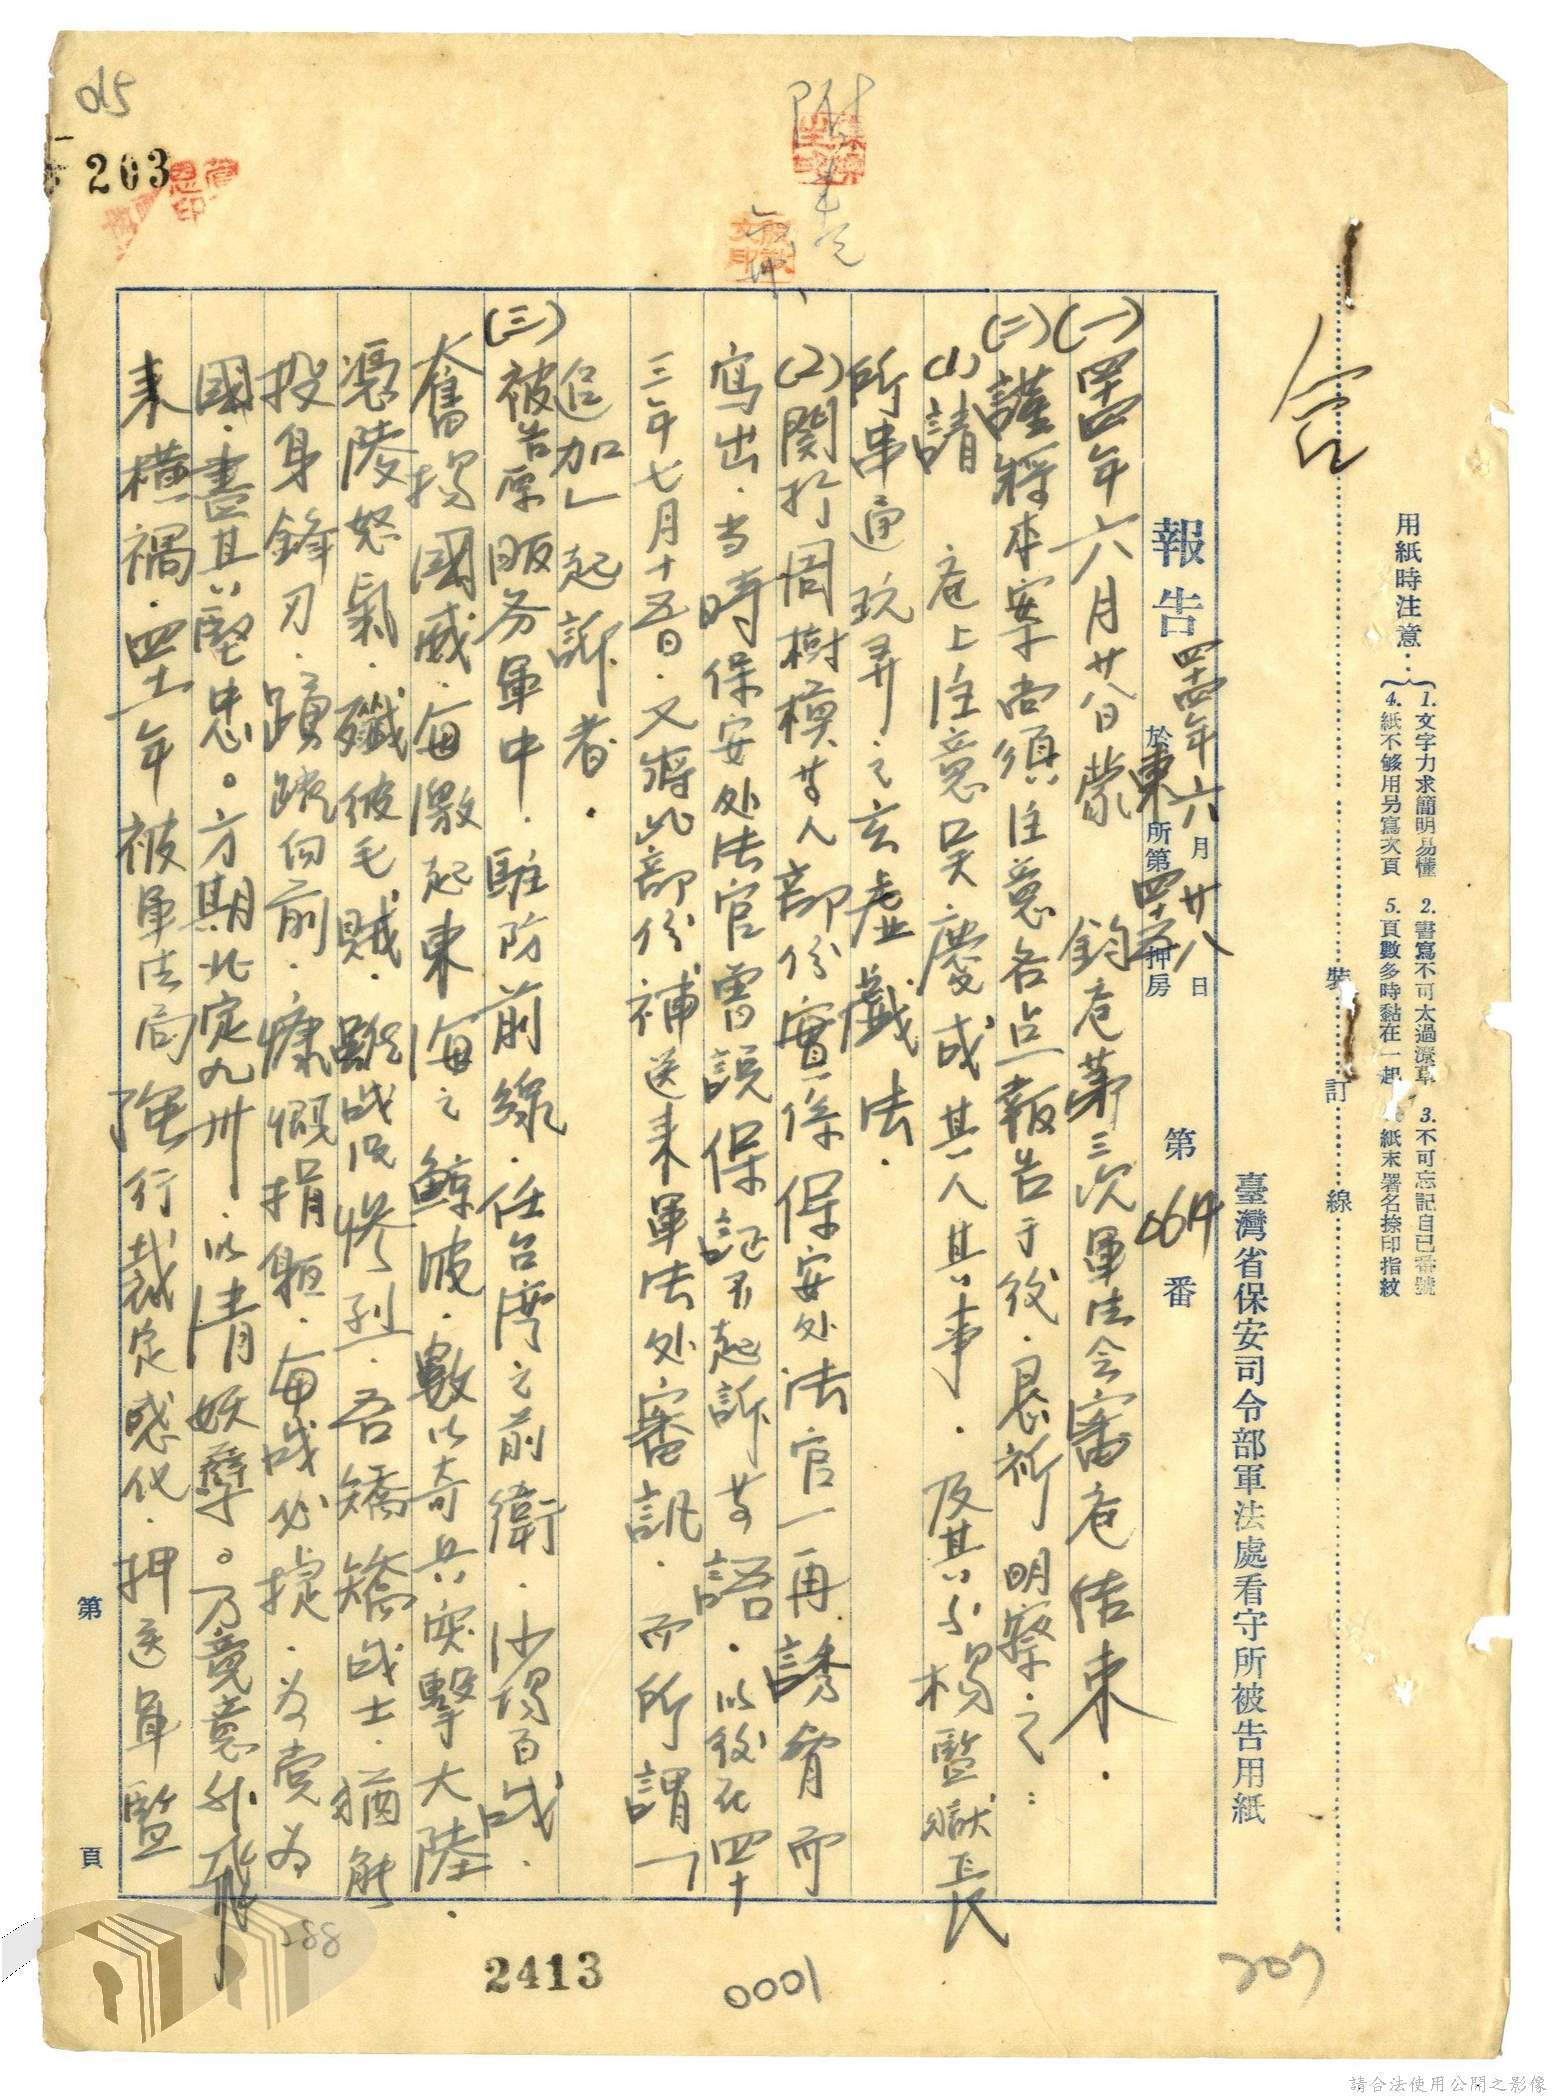 用紙時注意：
1. 文字力求簡明易懂
2. 書寫不可太過潦草
3. 不可忘記自己番號
4. 紙不够用另寫次頁
5. 頁數多時黏在一起
紙末署名捺印指紋
裝 訂 線
臺灣省保安司令部軍法處看守所被告用紙
報告 四十四年六月廿八日 於東所第四十六押房 第 0614 番
(一)四十四年六月廿八日蒙 鈞庭第三次軍法会審庭结束．
(二)謹將本案尚須注意各点報告于後．恳祈 明察之：
(1)請 庭上注意吴慶成其人其事．及其小楊監獄長
所串通玩弄之玄虚戲法．
(2)関於周樹模其人部份實係保安处法官一再誘脅而
寫出．当時保安处法官曾説保証不起訴等語．以後在四十
三年七月十五日．又將此部份補送来軍法处審訊．而所謂「
追加」起訴者．
(三)被告原服务軍中．駐防前線．任台湾之前衛．沙場百战．
奮揚國威．每激起東海之鯨波．數以奇兵突擊大陸．
憑陵怒氣．殲彼毛賊．雖战况惨烈．吾矯矯战士．猶能
投身鋒刃．踴躍向前．慷慨捐軀．每战必捷．为党为
國．盡其堅忠。方期北定九州．以清妖孽。乃竟意外飛
来橫禍．四十一年被軍法局強行裁定感化．押送軍監
第 頁
015
203
288
2413
0001
207
請合法使用公開之影像